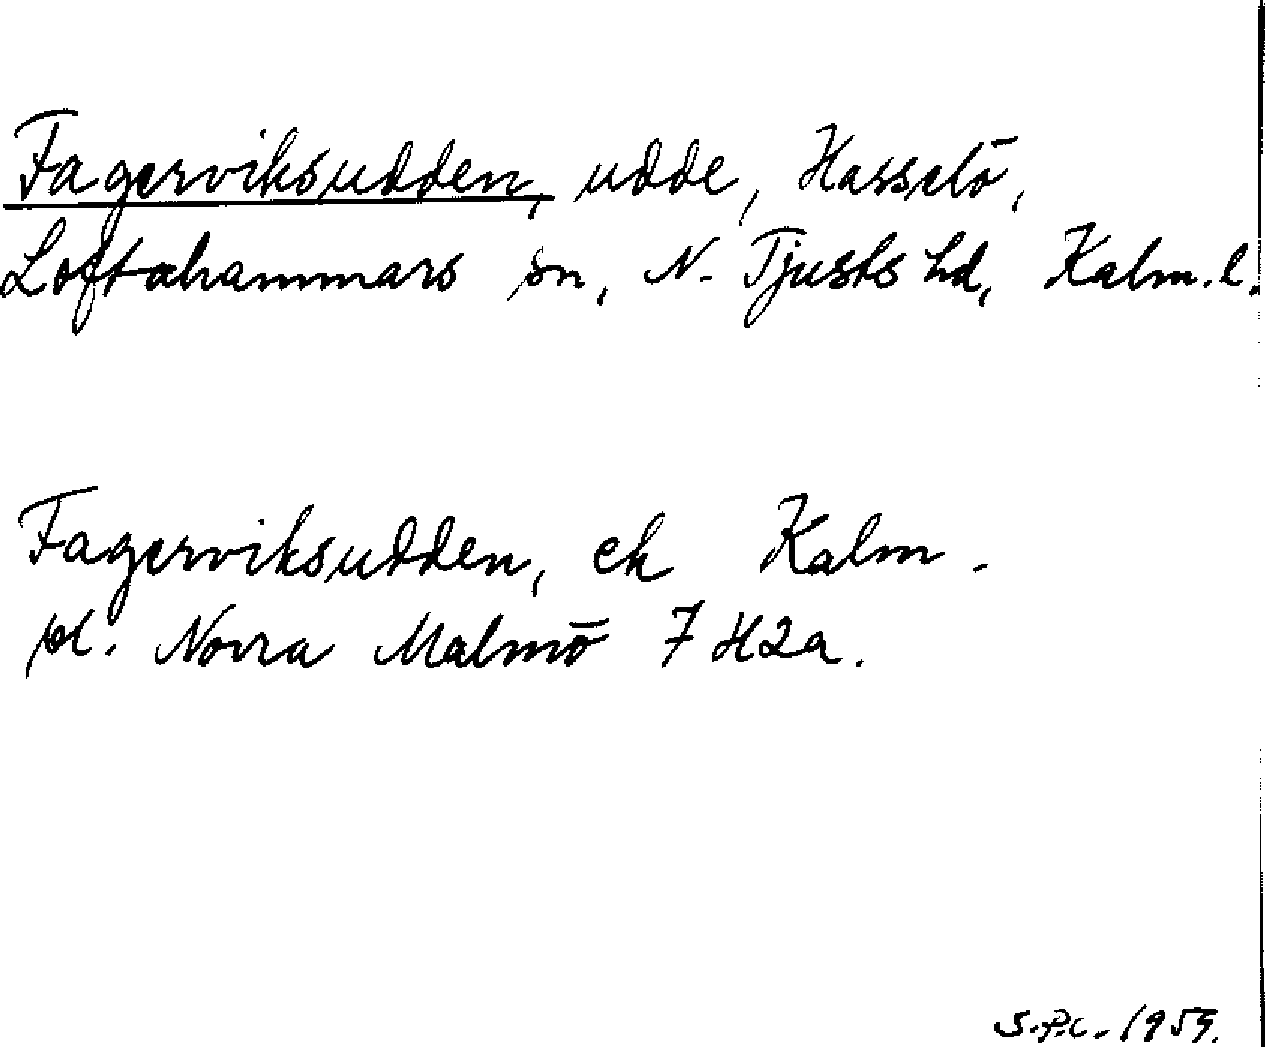 Fagerviksudden, udde, Hasselö,
Loftahammars sn, N. Tjusts hd, Kalm. l.
Fagerviksudden, ek Kalm.
bl. Norra Malmö 7 H2a.
S.P.C. 1959.